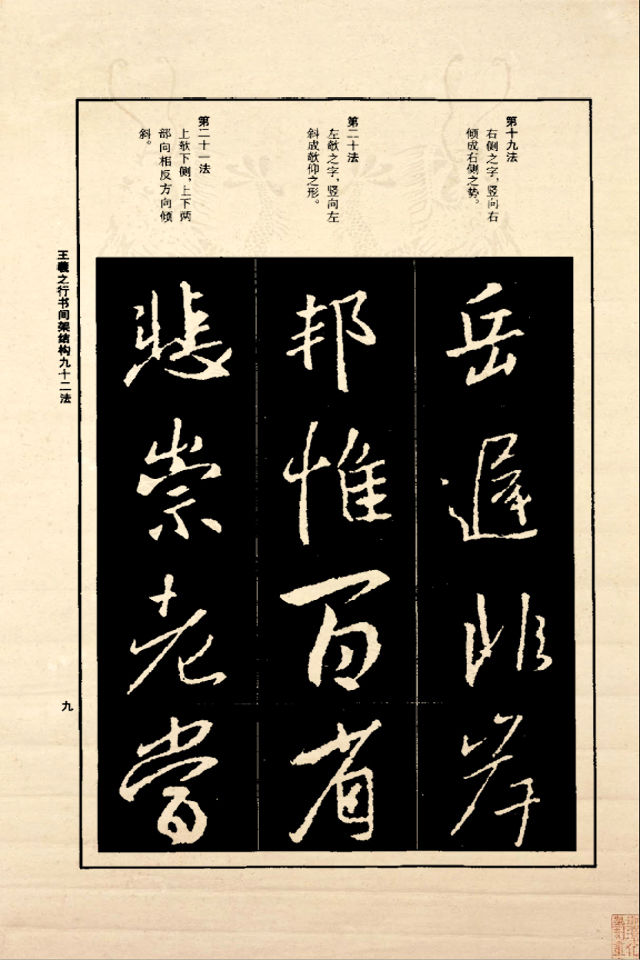 第十九法
右侧之字，竖向右
倾成右侧之势。
第二十法
左欹之字，竖向左
斜成欹仰之形。
第二十一法
上欹下侧，上下两
部向相反方向倾
斜。
岳遲非岸
邦惟百省
悲崇老当
王羲之行书间架结构九十二法
九